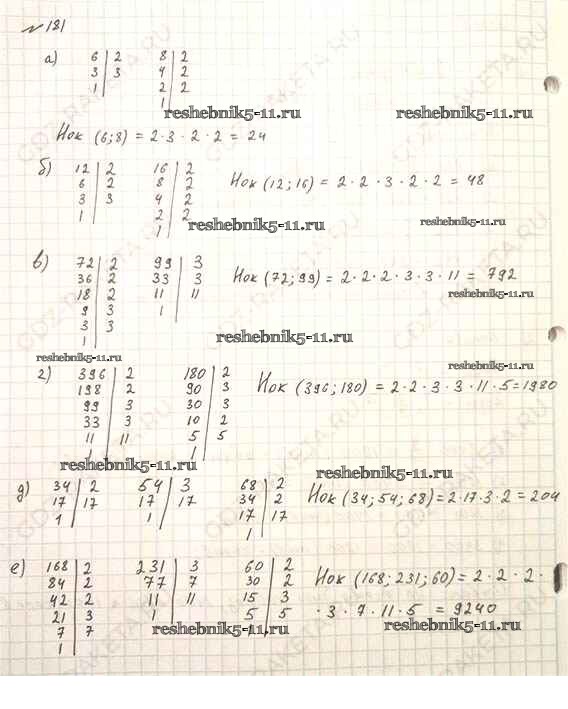 № 181
а) 6 | 2 8 | 2
3 | 3 4 | 2
1 | 2 | 2
1 |
reshebnik5-11.ru reshebnik5-11.ru
Нок (6;8) = 2·3·2·2 = 24
б) 12 | 2 16 | 2 Нок (12;16) = 2·2·3·2·2 = 48
6 | 2 8 | 2
3 | 3 4 | 2
1 | 2 | 2
1 |
reshebnik5-11.ru reshebnik5-11.ru
в) 72 | 2 99 | 3 Нок (72;99) = 2·2·2·3·3·11 = 792
36 | 2 33 | 3
18 | 2 11 | 11
9 | 3 1 |
3 | 3
1 |
reshebnik5-11.ru
reshebnik5-11.ru
reshebnik5-11.ru reshebnik5-11.ru
г) 396 | 2 180 | 2 Нок (396;180) = 2·2·3·3·11·5=1980
198 | 2 90 | 3
99 | 3 30 | 3
33 | 3 10 | 2
11 | 11 5 | 5
1 | 1 |
reshebnik5-11.ru reshebnik5-11.ru
д) 34 | 2 54 | 3 68 | 2 Нок (34;54;68) = 2·17·3·2 = 204
17 | 17 17 | 17 34 | 2
1 | 1 | 17 | 17
1 |
е) 168 | 2 231 | 3 60 | 2 Нок (168;231;60) = 2·2·2·
84 | 2 77 | 7 30 | 2
42 | 2 11 | 11 15 | 3 ·3·7·11·5 = 9240
21 | 3 1 | 5 | 5
7 | 7 1 |
1 |
reshebnik5-11.ru reshebnik5-11.ru